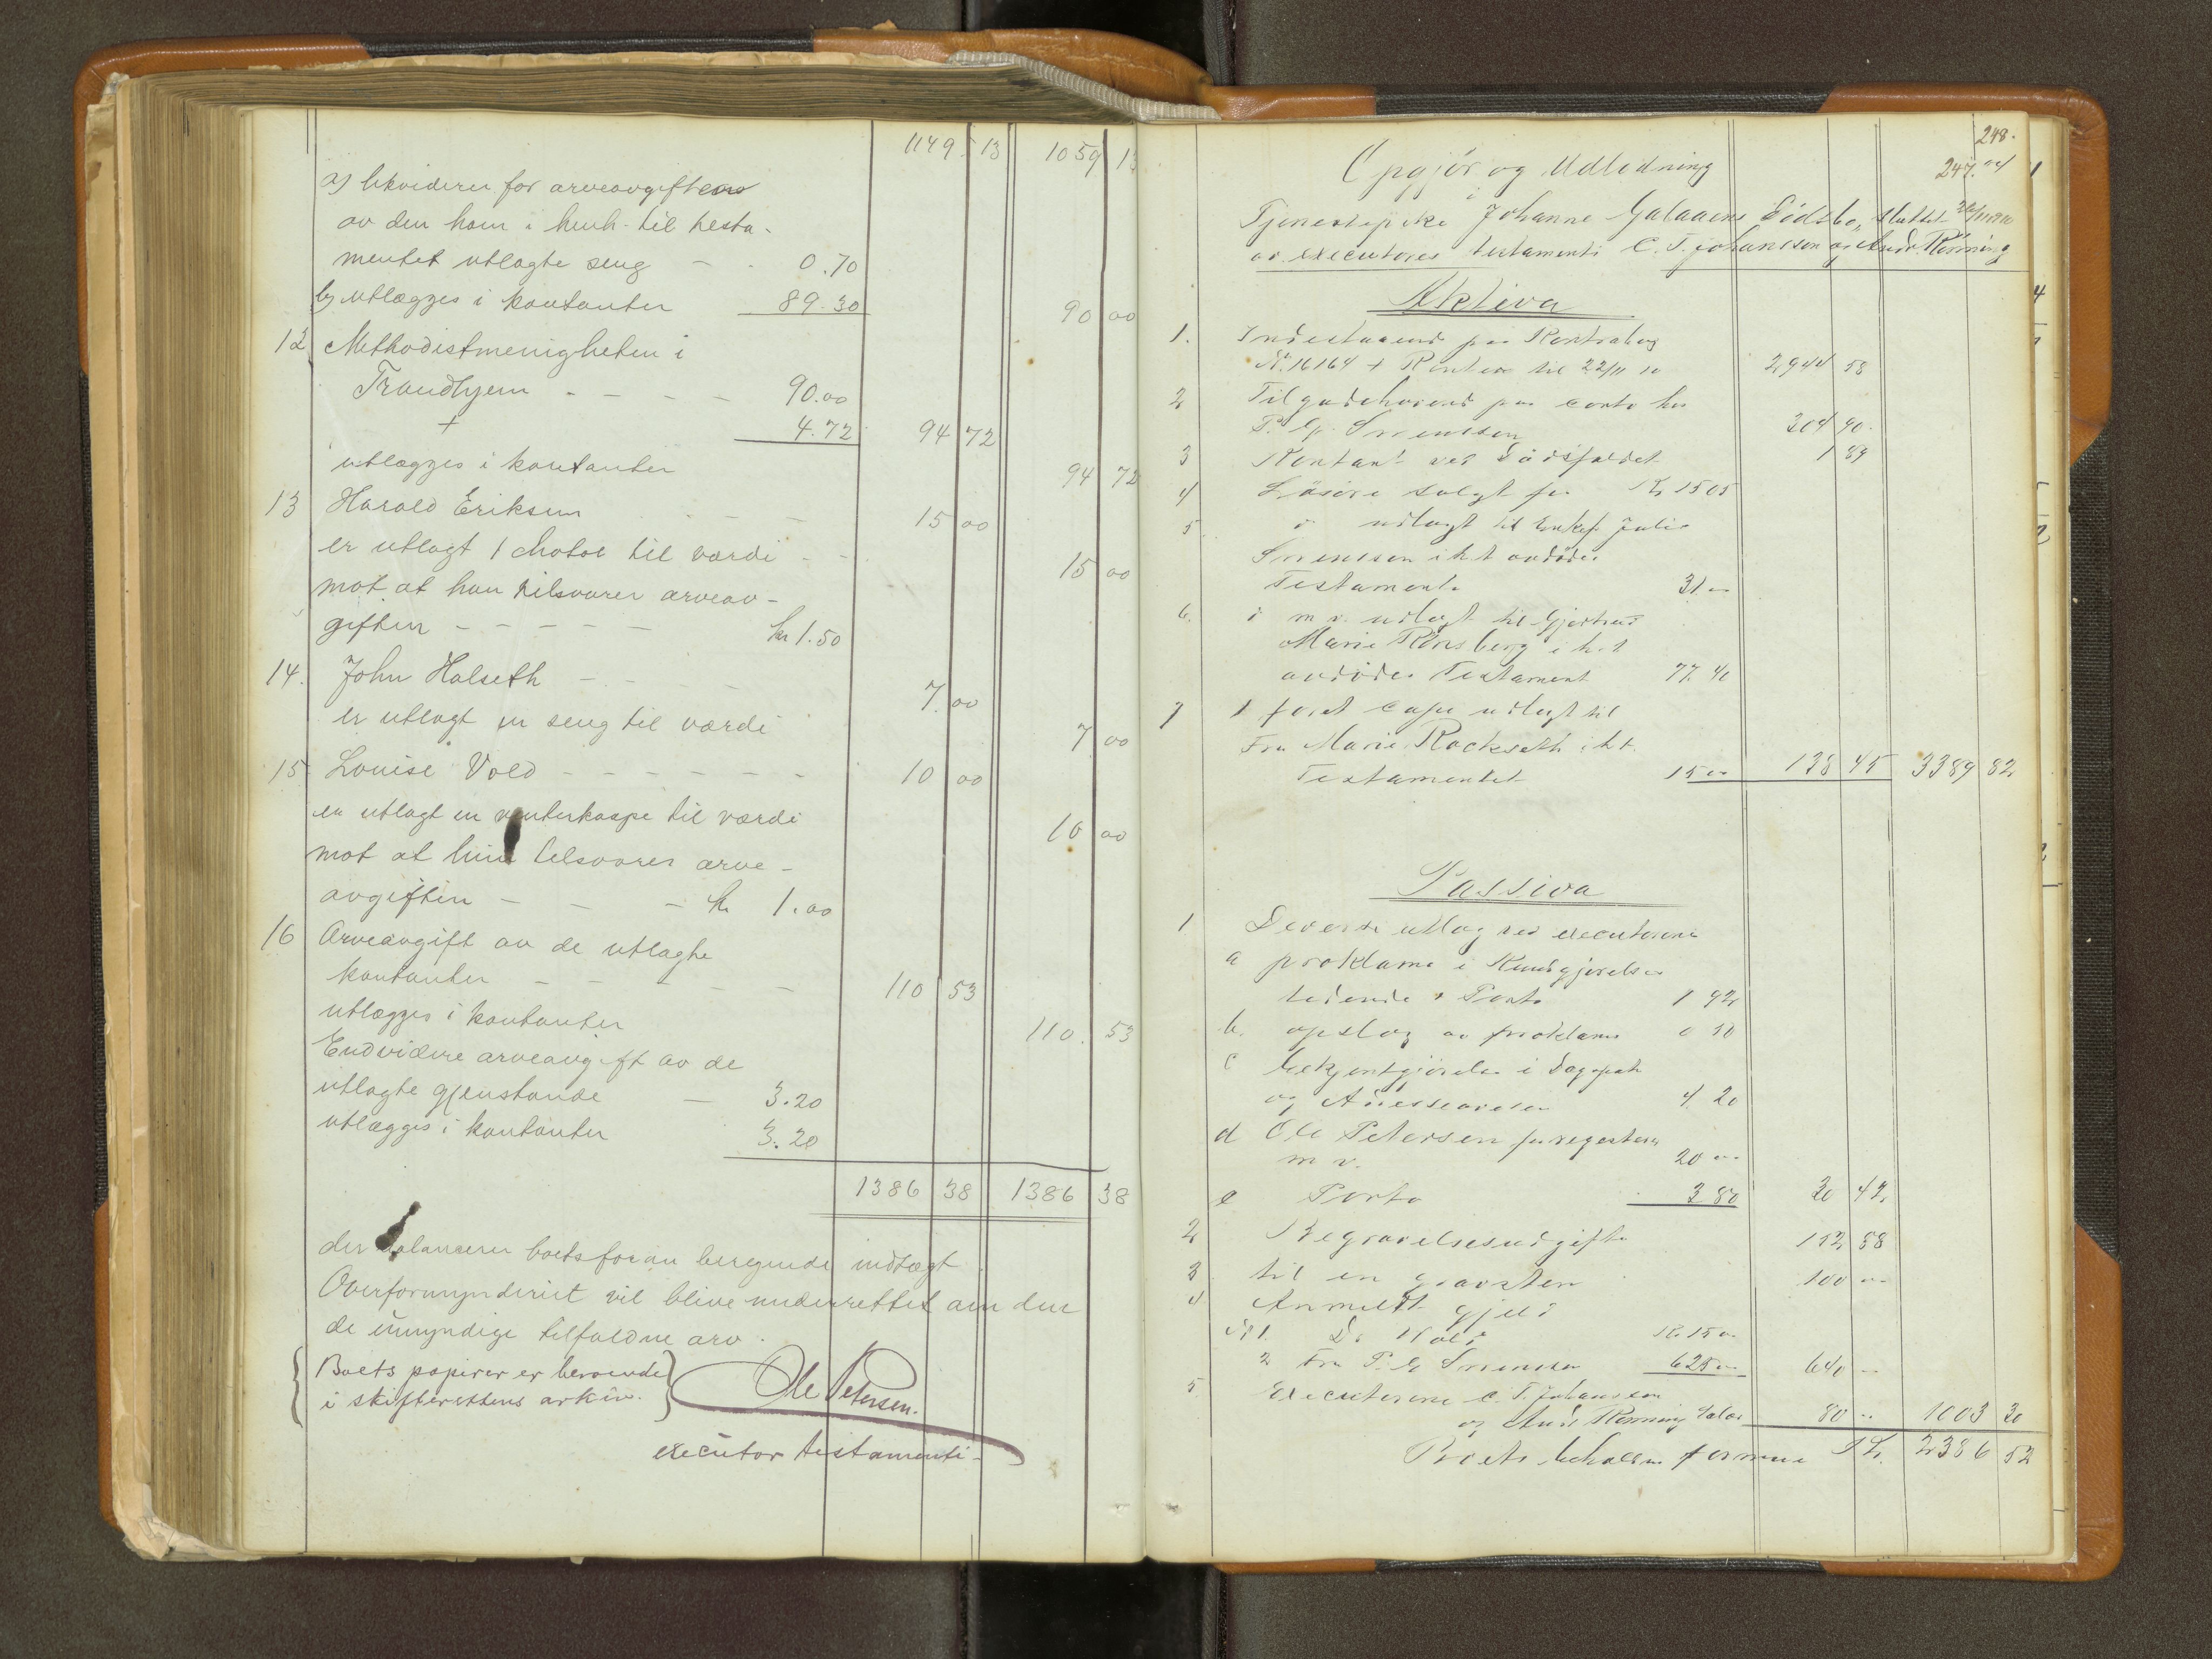 1149 13 1059 13
a) likviderer for arveavgiften
av den ham i henh. til testa-
mentet utlagte seng - 0.70
b) utlægges i kontanter 89.30 90 00
12 Methodistmenigheten i
Trondhjem - - - - 90.00
+ 4.72 94 72
utlægges i kontanter 94 72
13 Harald Eriksen - - 15 00
er utlagt 1 chatol til værdi - - 15 00
mot at han tilsvarer arveav-
giften - - - - - kr 1.50
14. John Halseth - - - 7.00
er utlagt en seng til værdi 7 00
15 Louise Vold - - - - - - 10 00
er utlagt en vinterkaape til værdi 10 00
mot at hun tilsvarer arve-
avgiften - - - kr 1.00
16 Arveavgift av de utlagte
kontanter - - - - - 110 53
utlægges i kontanter 110. 53
Endvidere arveavgift av de
utlagte gjenstande - 3.20
utlægges i kontanter 3.20
1386 38 1386 38
der balancerer boets foran beregnede indtægt.
Overformynderiet vil blive underrettet om den
de umyndige tilfaldne arv.
Boets papirer er beroende
i skifterettens arkiv.
Ole Petersen.
executor testamenti.
248.
247.
Opgjör og Udlodning
i
Tjenestepike Johanne Dödsbo, sluttet
av executores testamenti C. T. Johansson og Andr. Rönning
Aktiva
1. Indestaaend paa Kontrabog
No. 16164 + Renter til 22/11 10 2944 58
2 Tilgodehavend paa conto hos
P. G. Svensson 304 90.
3 Kontant ved Dödsfaldet 1 89
4 Lösöre solgt for Kr 15 05
5. do udlagt til Enkef Julie
Svensson i h.t avdödes
Testamente 31 00
6. do m v. udlagt til Gjertrud
Marie Rönsberg i h.t
avdödes Testament 77. 40
7 1 foret cape udlagt til
Fru Marie Rockseth i h.t.
Testamentet 15 00 138 45 3389 82
Passiva
1 Diverse utlæg ved executorene
a proklama i Kundgjörelses
tidende + Porto 1 92
b. opslag av proklama 0 50
c bekjentgjörelse i Dagspost
og Adresseavisen 4. 20
d Ole Petersen for registrering
m v. 20 00
e Porto 3 80 30 42
2 Begravelsesudgifter 152 88
3 til en gravsten 100 00
4 Anmeldt gjeld
No 1. Dr Kr. 15 00
2 Fru P. G. Svensson 625 00 640 -
5. Executorene C. T. Johansson
og Andr Rönning Salær 80 .. 1003 30
Boets beholdne formue Kr. 2386 52